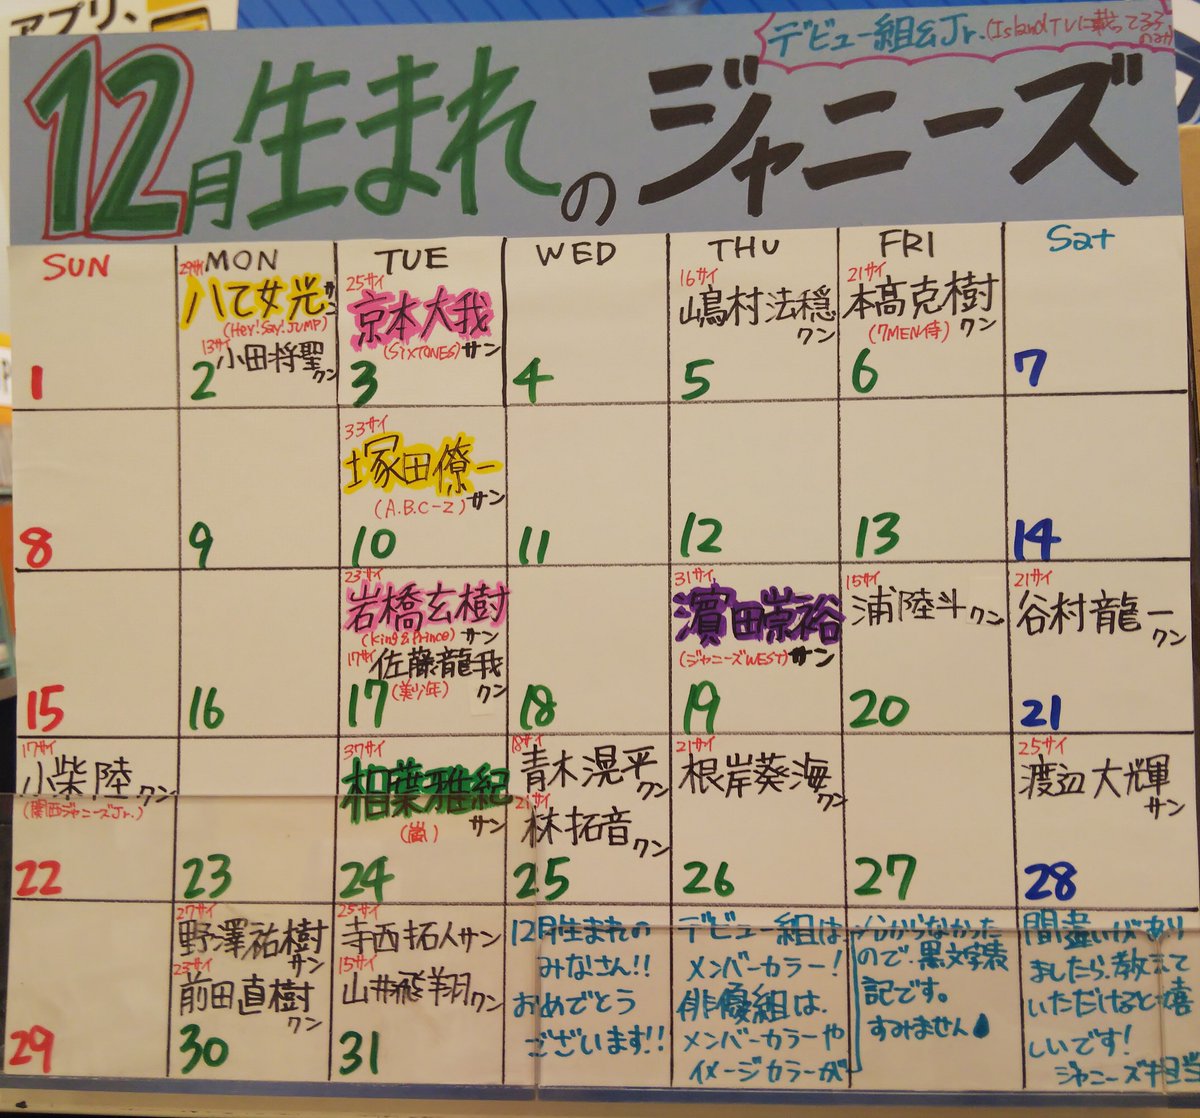 アプリ、
デビュー組&Jr.(Island TVに載ってる子のみ)
12月生まれのジャニーズ
SUN MON TUE WED THU FRI Sat
1
29サイ
八乙女光サン
(Hey!Say!JUMP)
13サイ
小田将聖クン
2
25サイ
京本大我
(SixTONES)サン
3
4
16サイ
嶋村法穏
クン
5
21サイ
本髙克樹
(7MEN侍)クン
6
7
8
9
33サイ
塚田僚一
(A.B.C-Z)サン
10
11
12
13
14
15
16
23サイ
岩橋玄樹
(King&Prince)サン
17サイ
佐藤龍我
(美少年)クン
17
18
31サイ
濵田崇裕
(ジャニーズWEST)サン
19
15サイ
浦陸斗クン
20
21サイ
谷村龍一
クン
21
17サイ
小柴陸クン
(関西ジャニーズJr.)
22
23
37サイ
相葉雅紀
サン
(嵐)
24
18サイ
青木滉平
クン
21サイ
林拓音クン
25
21サイ
根岸葵海
クン
26
27
25サイ
渡辺大輝
サン
28
29
27サイ
野澤祐樹
サン
23サイ
前田直樹
クン
30
25サイ
寺西拓人サン
15サイ
山井飛翔クン
31
12月生まれの
みなさん!!
おめでとう
ございます!!
デビュー組は
メンバーカラー!
俳優組は、
メンバーカラーや
イメージカラーが
分からなかった
ので、黒文字表
記です。
すみません
間違いがあり
ましたら、教えて
いただけると嬉
しいです!
ジャニーズ担当